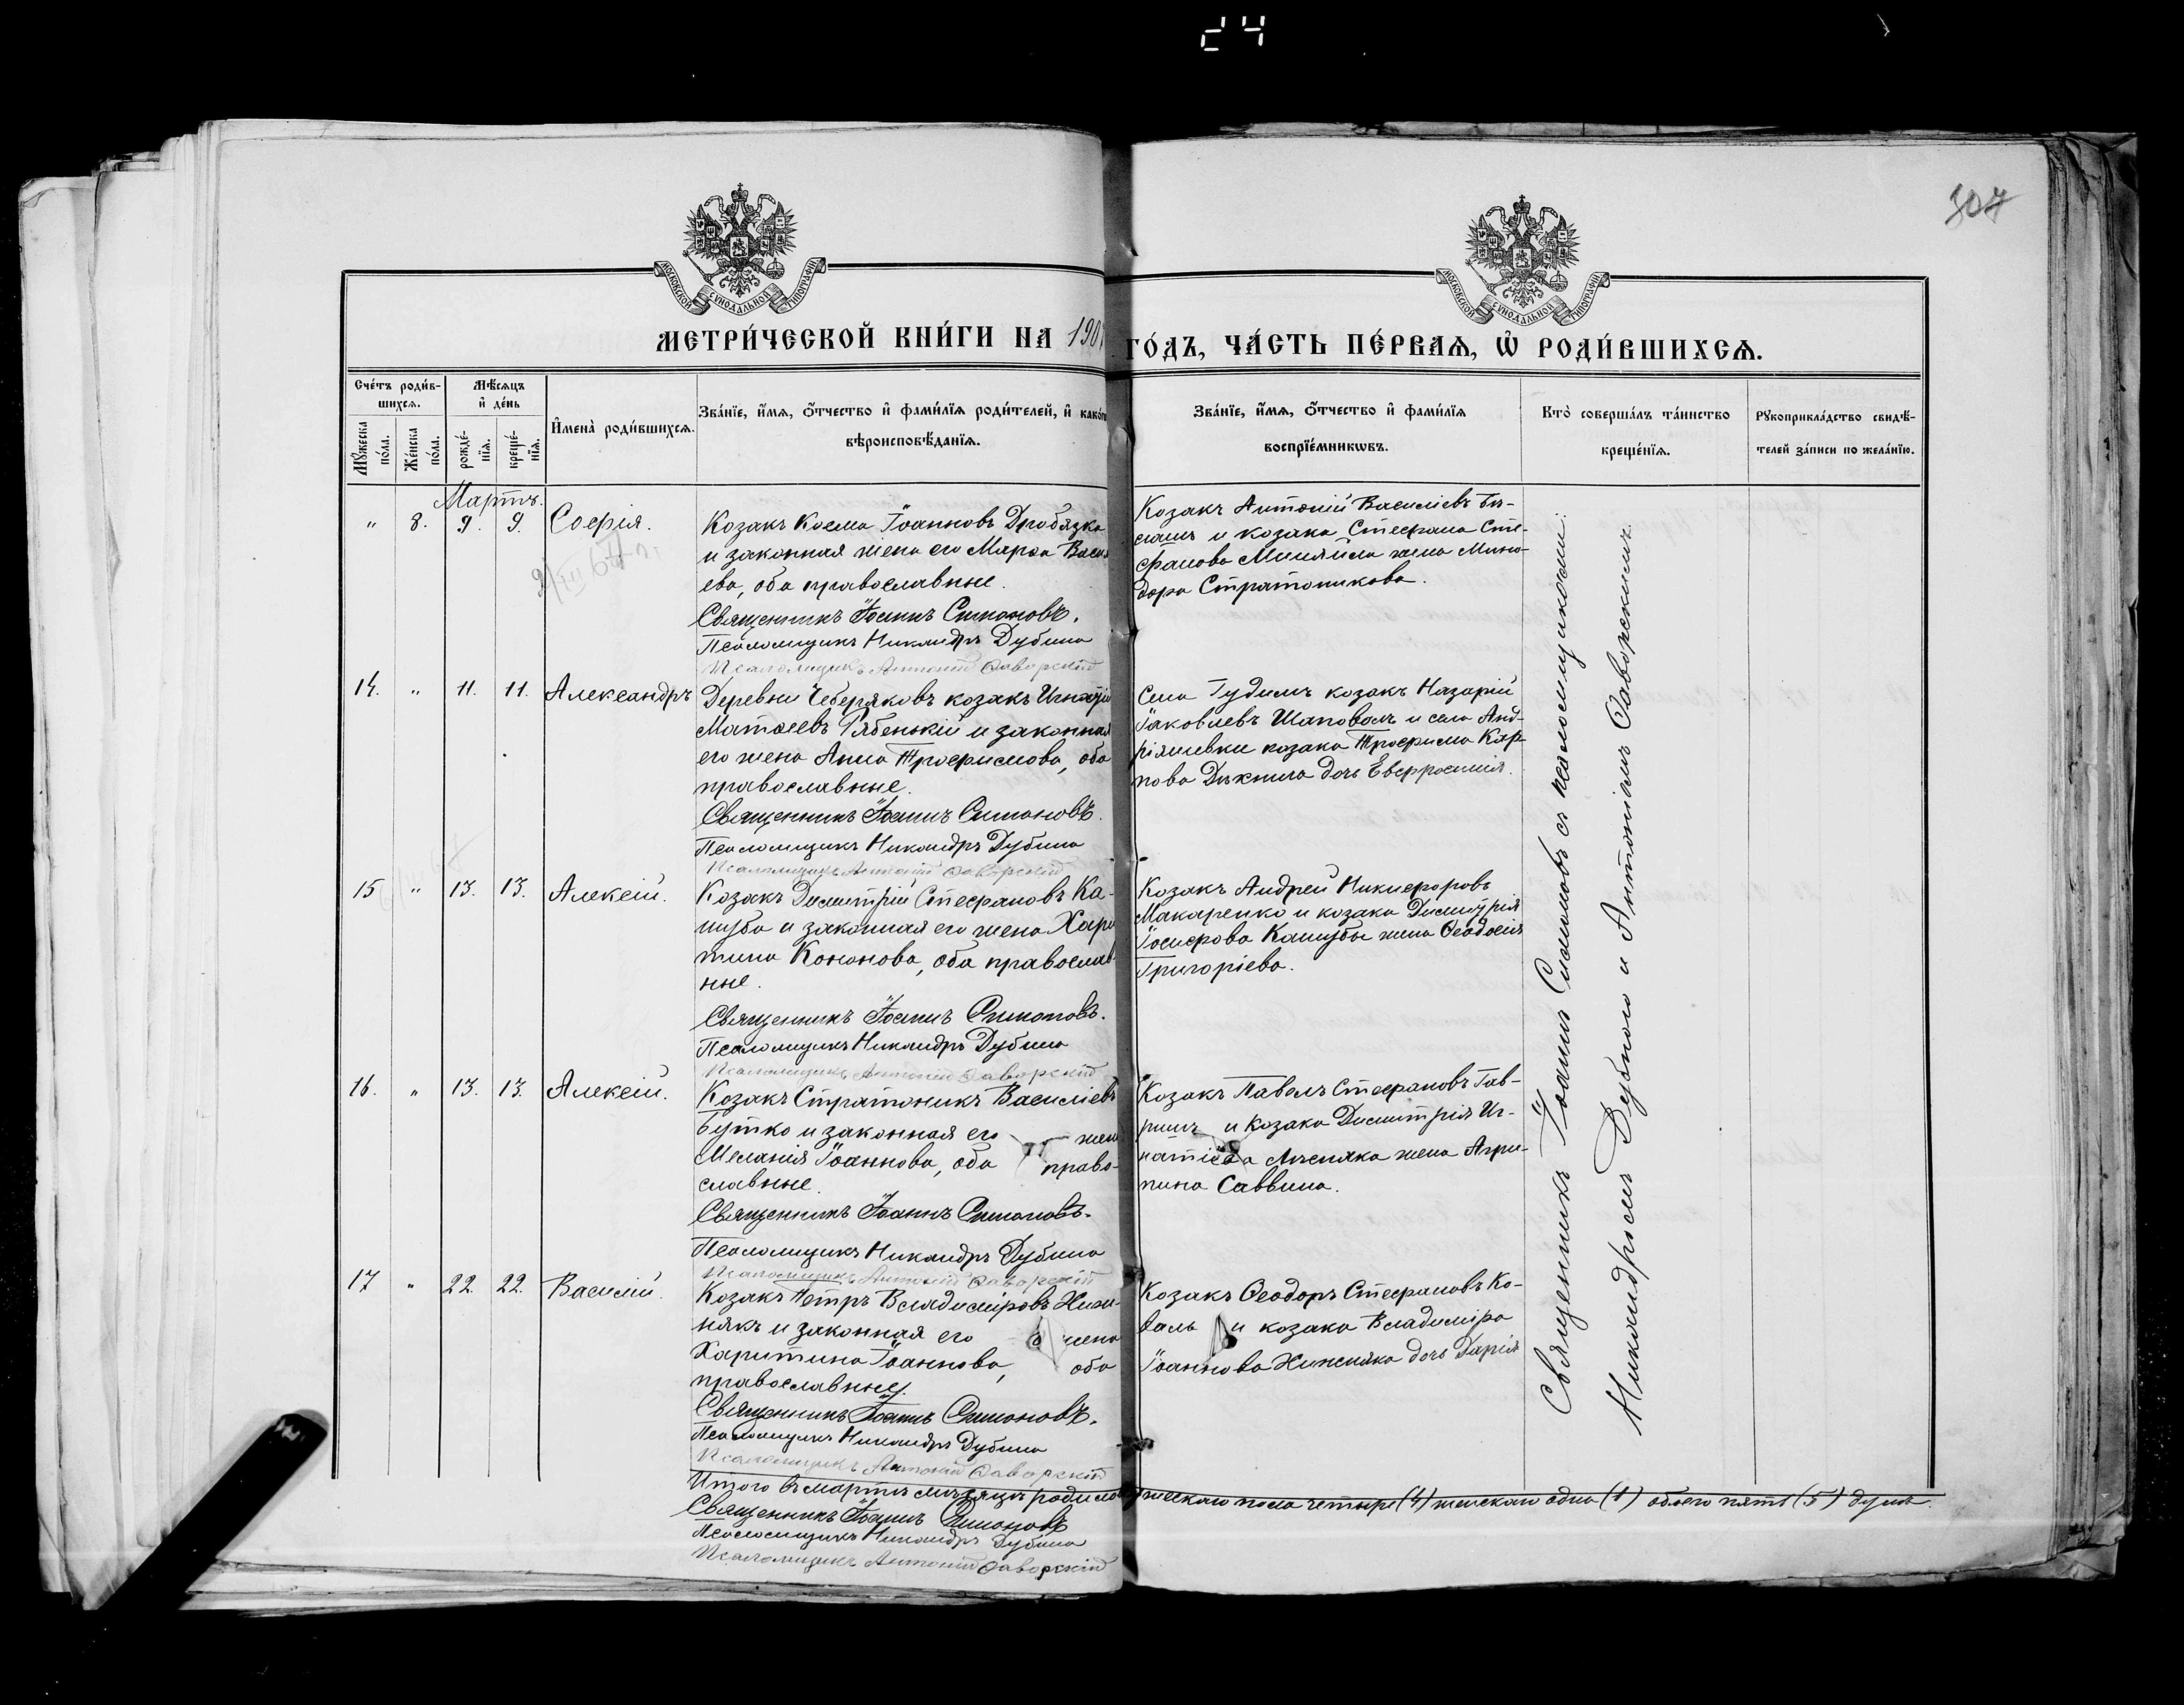 24
307
МОСКОВСКОЙ СѴНОДАЛЬНОЙ ТИПОГРАФІИ
МОСКОВСКОЙ СѴНОДАЛЬНОЙ ТИПОГРАФІИ
МЕТРИ́ЧЕСКОЙ КНИ́ГИ НА 190
ГО́ДЪ, ЧА́СТЬ ПЕ́РВАѦ, Ѽ РОДИ́ВШИХСѦ.
Сче́тъ роди́в-
шихсѧ.
Мѣ́сѧцъ
и҆ де́нь
Мꙋ́жеска
по́ла.
Же́нска
по́ла.
рожде́-
нїѧ.
креще́-
нїѧ.
И҆мена̀ роди́вшихсѧ.
Зва́нїе, и҆́мѧ, ѻ҆́тчество и҆ фами́лїѧ роди́телей, и҆ како́г
вѣроисповѣ́данїѧ.
Зва́нїе, и҆́мѧ, ѻ҆́тчество и҆ фами́лїѧ
воспрїе́мникѡвъ.
Кто̀ соверша́лъ та́инство
креще́нїѧ.
Рꙋкоприкла́дство свидѣ́-
телей за́писи по жела́нїю.
Мартъ.
" 8. 9. 9. Софія.
Козакъ Косма Іоанновъ Дробязка
и законная жена его Марѳа Васил
ева, оба православные.
Священникъ Іоаннъ Симоновъ.
Псаломщикъ Никандръ Дубина
Псаломщикъ Антоній Яворскій
Козакъ Антоній Василіевъ Бѣ-
и козака Стефана Сте-
фанова Миняйла жена Мино-
дора Стратоникова.
14. " 11. 11. Александръ
Деревни Чеберяковъ козакъ Игнатій
Матѳеевъ Рябенькій и законная
его жена Анна Трофимова, оба
православные.
Священникъ Іоаннъ Симоновъ.
Псаломщикъ Никандръ Дубина
Псаломщикъ Антоній Яворскій
Села Гудимъ козакъ Назарій
Іаковлевъ Шаповалъ и села Анд-
ріяшевки козака Трофима Кар-
пова дочь Евфросинія.
15 " 13. 13. Алексій.
Козакъ Димитрій Стефановъ Ка-
шуба и законная его жена Хари
тина Кононова, оба православ-
ные.
Священникъ Іоаннъ Симоновъ.
Псаломщикъ Никандръ Дубина
Псаломщикъ Антоній Яворскій
Козакъ Андрей Никифоровъ
Макаренко и козака Димитрія
Іосифова Кашубы жена Ѳеодосія
Григоріева.
16. " 13. 13. Алексій.
Козакъ Стратоникъ Василіевъ
Бутко и законная его жена
Меланія Іоаннова, оба право-
славные.
Священникъ Іоаннъ Симоновъ.
Псаломщикъ Никандръ Дубина
Псаломщикъ Антоній Яворскій
Козакъ Павелъ Стефановъ Гав-
ришъ и козака Димитрія Иг-
натіева жена Агри-
пина Саввина.
17 " 22. 22. Василій.
Козакъ Петръ Владиміровъ Хиж-
някъ и законная его жена
Харитина Іоаннова, оба
православные.
Священникъ Іоаннъ Симоновъ.
Псаломщикъ Никандръ Дубина
Псаломщикъ Антоній Яворскій
Козакъ Ѳеодоръ Стефановъ Ко-
валь и козака Владиміра
Іоаннова Хижняка дочь Дарія
Священникъ Іоаннъ Симоновъ съ псаломщиками:
Никандромъ Дубиною и Антоніемъ Яворскимъ.
Итого въ мартѣ мѣсяцѣ родилось мужескаго пола четыре (4) женскаго одна (1) обоего пять (5) душъ.
Священникъ Іоаннъ Симоновъ
Псаломщикъ Никандръ Дубина
Псаломщикъ Антоній Яворскій